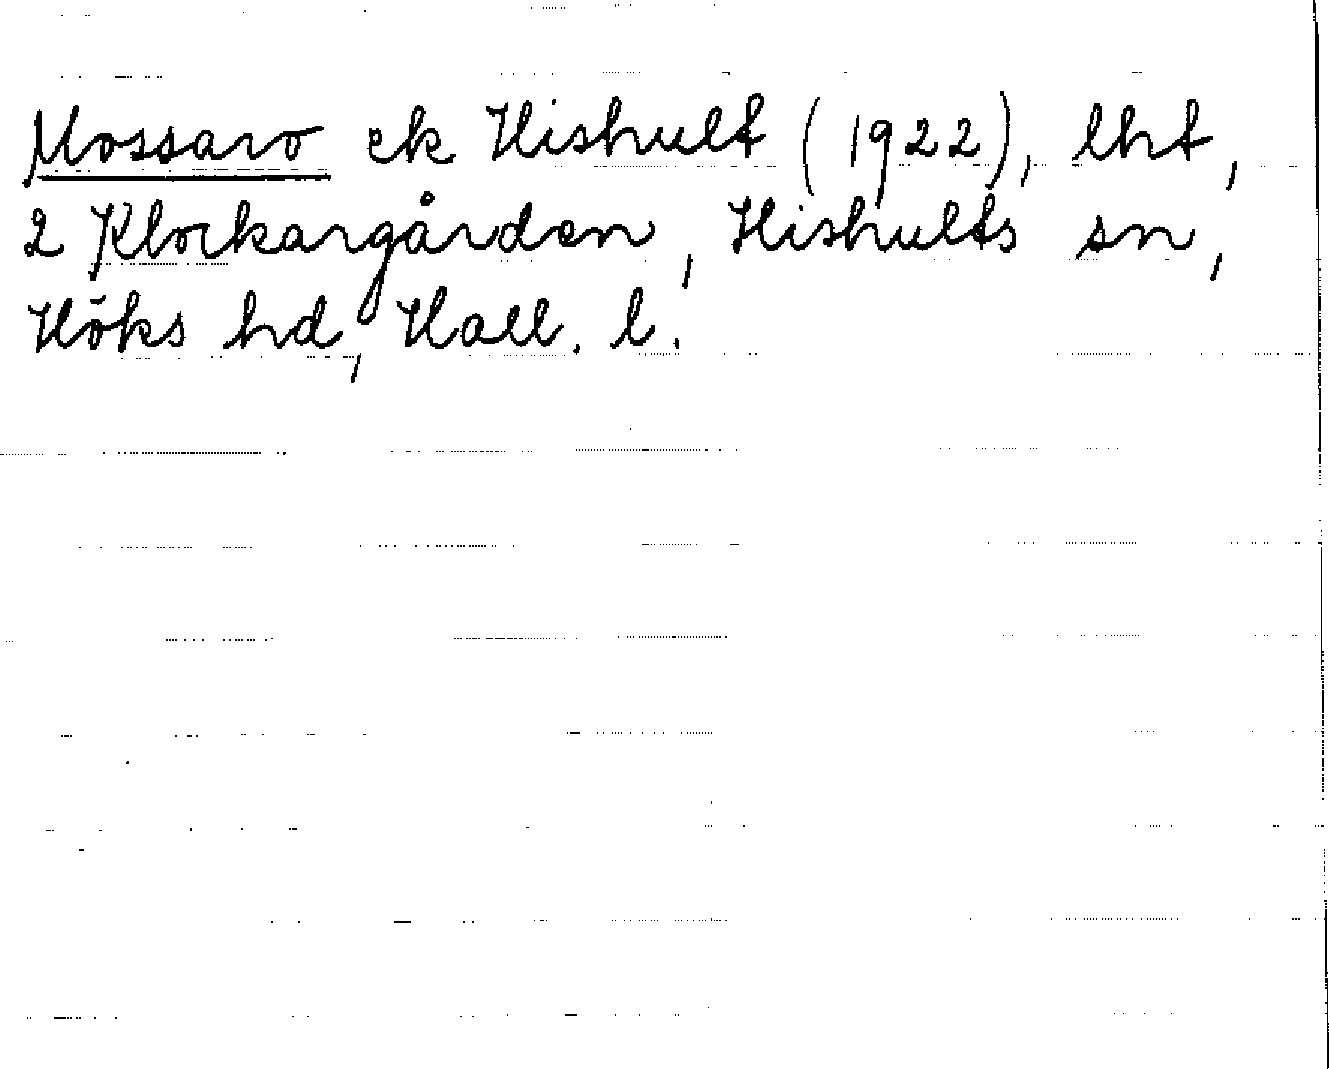 Mossaro ek Hishult (1922), lht,
2 Klockargården, Hishults sn,
Höks hd, Hall. l.